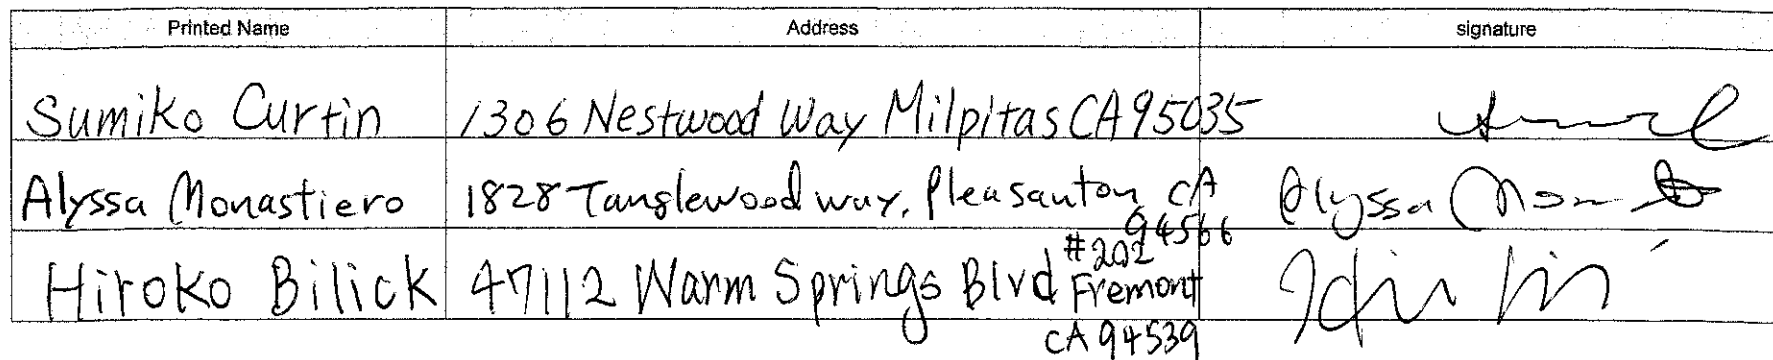 Printed Name Address signature
Sumiko Curtin 1306 Nestwood Way Milpitas CA 95035
Alyssa Monastiero 1828 Tanglewood way, Pleasanton, CA
94566
Hiroko Bilick 47112 Warm Springs Blvd #202
Fremont
CA 94539